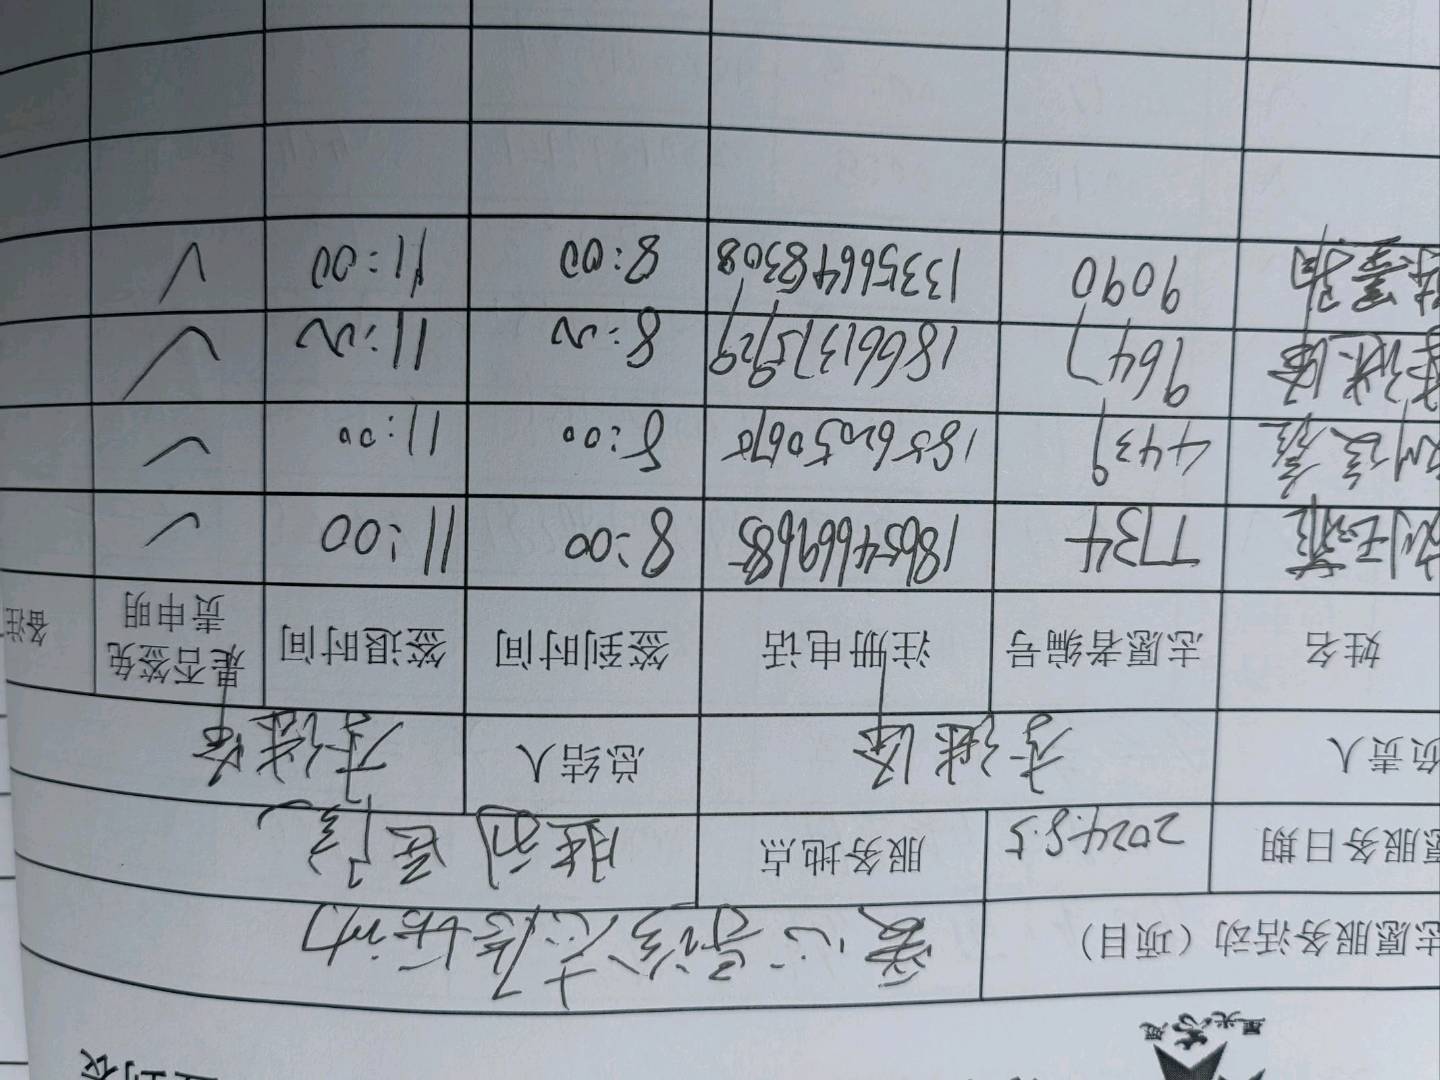 签到表
星光志愿
志愿服务活动（项目） 爱心
愿服务日期 2024.8.5 服务地点 胜利医院
负责人 李洪 总结人 李洪
姓名 志愿者编号 注册电话 签到时间 签退时间 是否签免责申明 备注
刘 7734 18654669685 8:00 11:00 ✓
刘 4439 18562050670 8:00 11:00 ✓
李洪 9647 18661375929 8:00 11:00 ✓
9090 13356648308 8:00 11:00 ✓